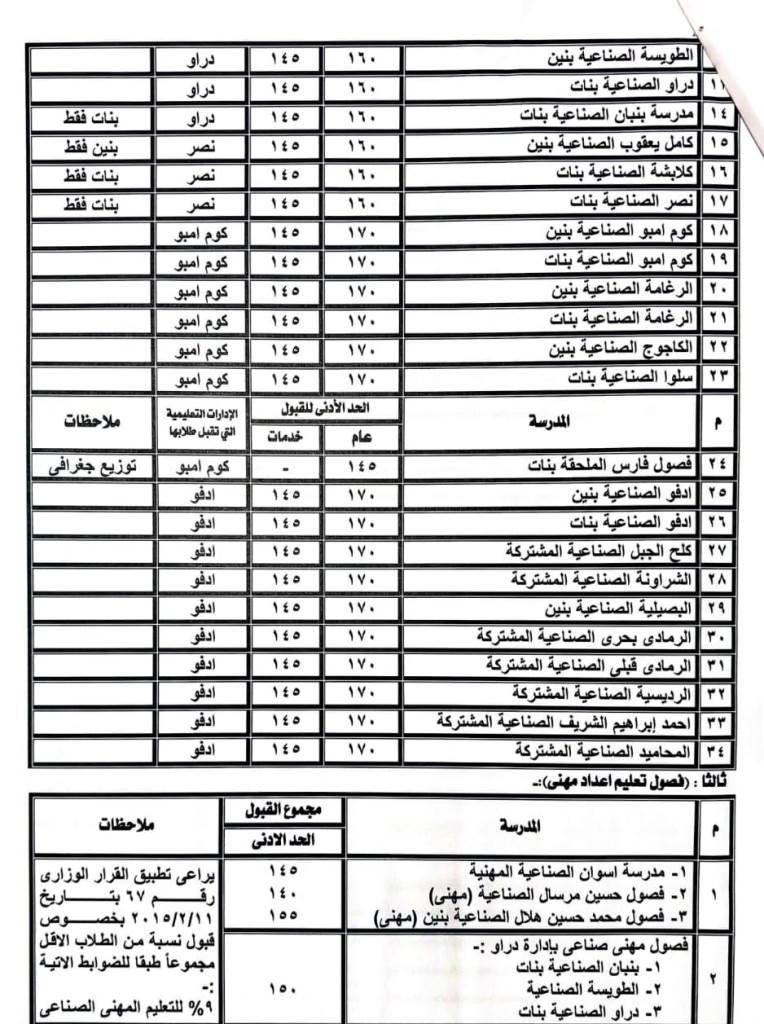 الطويسة الصناعية بنين ١٦٠ ١٤٥ دراو
دراو الصناعية بنات ١٦٠ ١٤٥ دراو
١٤ مدرسة بنبان الصناعية بنات ١٦٠ ١٤٥ دراو بنات فقط
١٥ كامل يعقوب الصناعية بنين ١٦٠ ١٤٥ نصر بنين فقط
١٦ كلابشة الصناعية بنات ١٦٠ ١٤٥ نصر بنات فقط
١٧ نصر الصناعية بنات ١٦٠ ١٤٥ نصر بنات فقط
١٨ كوم امبو الصناعية بنين ١٧٠ ١٤٥ كوم امبو
١٩ كوم امبو الصناعية بنات ١٧٠ ١٤٥ كوم امبو
٢٠ الرغامة الصناعية بنين ١٧٠ ١٤٥ كوم امبو
٢١ الرغامة الصناعية بنات ١٧٠ ١٤٥ كوم امبو
٢٢ الكاجوج الصناعية بنين ١٧٠ ١٤٥ كوم امبو
٢٣ سلوا الصناعية بنات ١٧٠ ١٤٥ كوم امبو
م المدرسة الحد الأدنى للقبول الإدارات التعليمية التي تقبل طلابها ملاحظات
عام خدمات
٢٤ فصول فارس الملحقة بنات ١٤٥ - كوم امبو توزيع جغرافى
٢٥ ادفو الصناعية بنين ١٧٠ ١٤٥ ادفو
٢٦ ادفو الصناعية بنات ١٧٠ ١٤٥ ادفو
٢٧ كلح الجبل الصناعية المشتركة ١٧٠ ١٤٥ ادفو
٢٨ الشراونة الصناعية المشتركة ١٧٠ ١٤٥ ادفو
٢٩ البصيلية الصناعية بنين ١٧٠ ١٤٥ ادفو
٣٠ الرمادى بحرى الصناعية المشتركة ١٧٠ ١٤٥ ادفو
٣١ الرمادى قبلى الصناعية المشتركة ١٧٠ ١٤٥ ادفو
٣٢ الرديسية الصناعية المشتركة ١٧٠ ١٤٥ ادفو
٣٣ احمد إبراهيم الشريف الصناعية المشتركة ١٧٠ ١٤٥ ادفو
٣٤ المحاميد الصناعية المشتركة ١٧٠ ١٤٥ ادفو
ثالثا : (فصول تعليم اعداد مهنى):-
م المدرسة مجموع القبول ملاحظات
الحد الادنى
١ ١- مدرسة اسوان الصناعية المهنية ١٤٥
٢- فصول حسين مرسال الصناعية (مهنى) ١٤٠
٣- فصول محمد حسين هلال الصناعية بنين (مهنى) ١٥٥
٢ فصول مهنى صناعى بإدارة دراو :-
١- بنبان الصناعية بنات
٢- الطويسة الصناعية ١٥٠
٣- دراو الصناعية بنات
يراعى تطبيق القرار الوزارى
رقم ٦٧ بتاريخ
٢٠١٥/٢/١١ بخصوص
قبول نسبة من الطلاب الاقل
مجموعاً طبقا للضوابط الاتية
:-
٩% للتعليم المهنى الصناعى